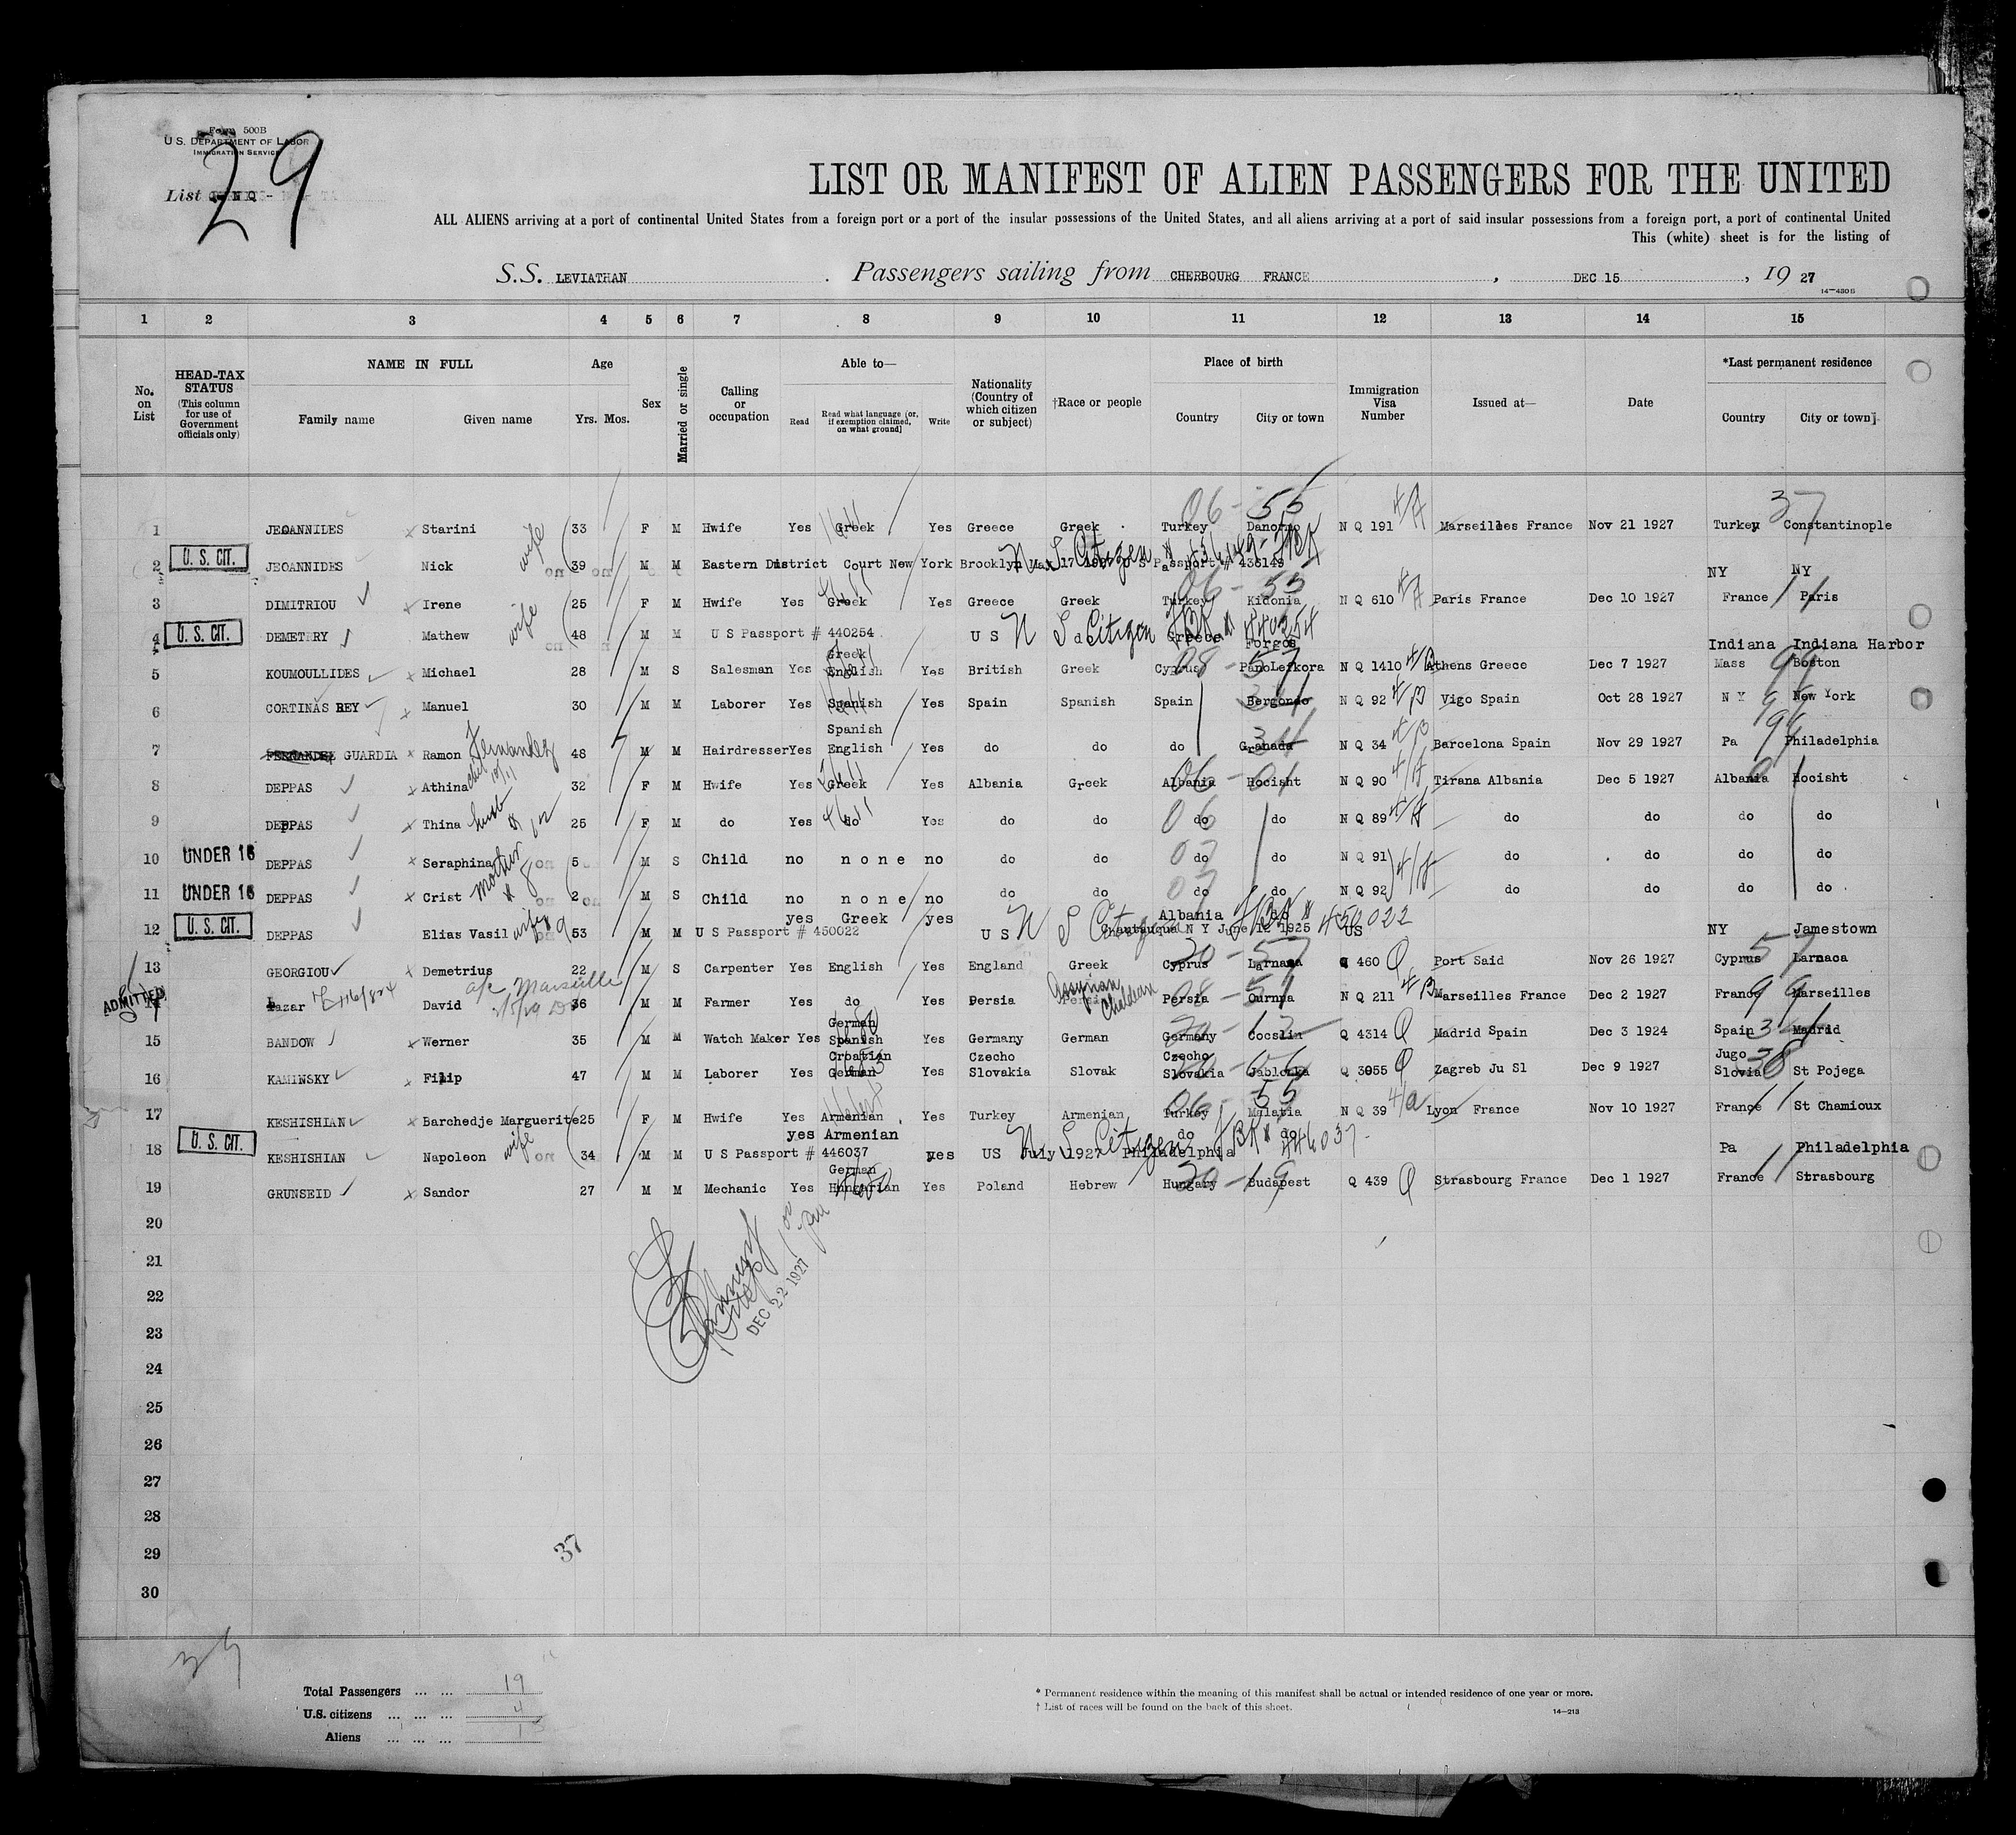 Form 500B
U. S. DEPARTMENT OF LABOR
IMMIGRATION SERVICE
29
List Q N Q -
LIST OR MANIFEST OF ALIEN PASSENGERS FOR THE UNITED
ALL ALIENS arriving at a port of continental United States from a foreign port or a port of the insular possessions of the United States, and all aliens arriving at a port of said insular possessions from a foreign port, a port of continental United
This (white) sheet is for the listing of
S.S. LEVIATHAN . Passengers sailing from CHERBOURG FRANCE , DEC 15 , 19 27
14—430 B
1 2 3 4 5 6 7 8 9 10 11 12 13 14 15
No. on List
HEAD-TAX STATUS (This column for use of Government officials only)
NAME IN FULL
Family name Given name
Age
Yrs. Mos.
Sex
Married or single
Calling or occupation
Able to—
Read Read what language [or, if exemption claimed, on what ground] Write
Nationality (Country of which citizen or subject)
†Race or people
Place of birth
Country City or town
Immigration Visa Number
Issued at—
Date
*Last permanent residence
Country City or town]
06 - 55 4/A 37
1 JEOANNIDES x Starini wife 33 F M Hwife Yes Greek Yes Greece Greek Turkey N Q 191 Marseilles France Nov 21 1927 Turkey Constantinople
2 U. S. CIT. JEOANNIDES Nick 39 M M Eastern District Court New York Brooklyn U S Passport # 436149 NY NY
3 DIMITRIOU x Irene wife 25 F M Hwife Yes Greek Yes Greece Greek Turkey Kidonia 06 - 55 N Q 610 4/A Paris France Dec 10 1927 France Paris 11
4 U. S. CIT. DEMETRY Mathew 48 M M U S Passport # 440254 U S Citizen Greece Forgos Indiana Indiana Harbor
5 KOUMOULLIDES x Michael 28 M S Salesman Yes Greek English Yes British Greek Cyprus PanoLefkora 08 - 57 N Q 1410 4/B Athens Greece Dec 7 1927 Mass Boston 99
6 CORTINAS REY x Manuel 30 M M Laborer Yes Spanish Yes Spain Spanish Spain Bergondo N Q 92 4/B Vigo Spain Oct 28 1927 N Y New York 99
7 GUARDIA x Ramon Fernandez 48 M M Hairdresser Yes Spanish English Yes do do do Granada N Q 34 4/B Barcelona Spain Nov 29 1927 Pa Philadelphia 99
8 DEPPAS x Athina 32 F M Hwife Yes Greek Yes Albania Greek Albania Hocisht 06 - 01 N Q 90 4/A Tirana Albania Dec 5 1927 Albania Hocisht
9 DEPPAS x Thina husb 25 F M do Yes do Yes do do do do 06 N Q 89 4/A do do do do
10 UNDER 16 DEPPAS x Seraphina mother 5 M S Child no none no do do do do 07 N Q 91 do do do do
11 UNDER 16 DEPPAS x Crist 2 M S Child no none no do do do do 07 N Q 92 4/A do do do do
12 U. S. CIT. DEPPAS Elias Vasil wife 53 M M yes Greek yes U S Passport # 450022 U S Citizen Albania do Chautauqua N Y June 12 1925 450022 US NY Jamestown
13 GEORGIOU x Demetrius 22 M S Carpenter Yes English Yes England Greek Cyprus Larnaca 20 - 57 Q 460 Q Port Said Nov 26 1927 Cyprus Larnaca 57
ADMITTED Lazar David a/c Marseille 36 M M Farmer Yes do Yes Persia Assyrian Chaldean Persia 08 - 51 N Q 211 4/B Marseilles France Dec 2 1927 France Marseilles
15 BANDOW x Werner 35 M M Watch Maker Yes German Spanish Yes Germany German Germany Cocslin Q 4314 Q Madrid Spain Dec 3 1924 Spain Madrid 34
16 KAMINSKY x Filip 47 M M Laborer Yes Croatian German Yes Czecho Slovakia Slovak Czecho Slovakia Jablonka Q 3055 Q Zagreb Ju Sl Dec 9 1927 Jugo Slovia St Pojega 38
17 KESHISHIAN x Barchedje Marguerite 25 F M Hwife Yes Armenian Yes Turkey Armenian Turkey Malatia 06 - 55 N Q 39 4/a Lyon France Nov 10 1927 France St Chamioux 11
18 U. S. CIT. KESHISHIAN Napoleon wife 34 M M yes Armenian U S Passport # 446037 yes US July 1927 Philadelphia do do Citizen 446037 Pa Philadelphia
19 GRUNSEID x Sandor 27 M M Mechanic Yes German Hungarian Yes Poland Hebrew Hungary Budapest 20 - 19 Q 439 Q Strasbourg France Dec 1 1927 France Strasbourg 11
20
DEC 22 1927
21
22
23
24
25
26
27
28
29
37
30
Total Passengers ... ... 19
U.S. citizens ... ... ... 4
Aliens ... ... ... 15
* Permanent residence within the meaning of this manifest shall be actual or intended residence of one year or more.
† List of races will be found on the back of this sheet.
14—213